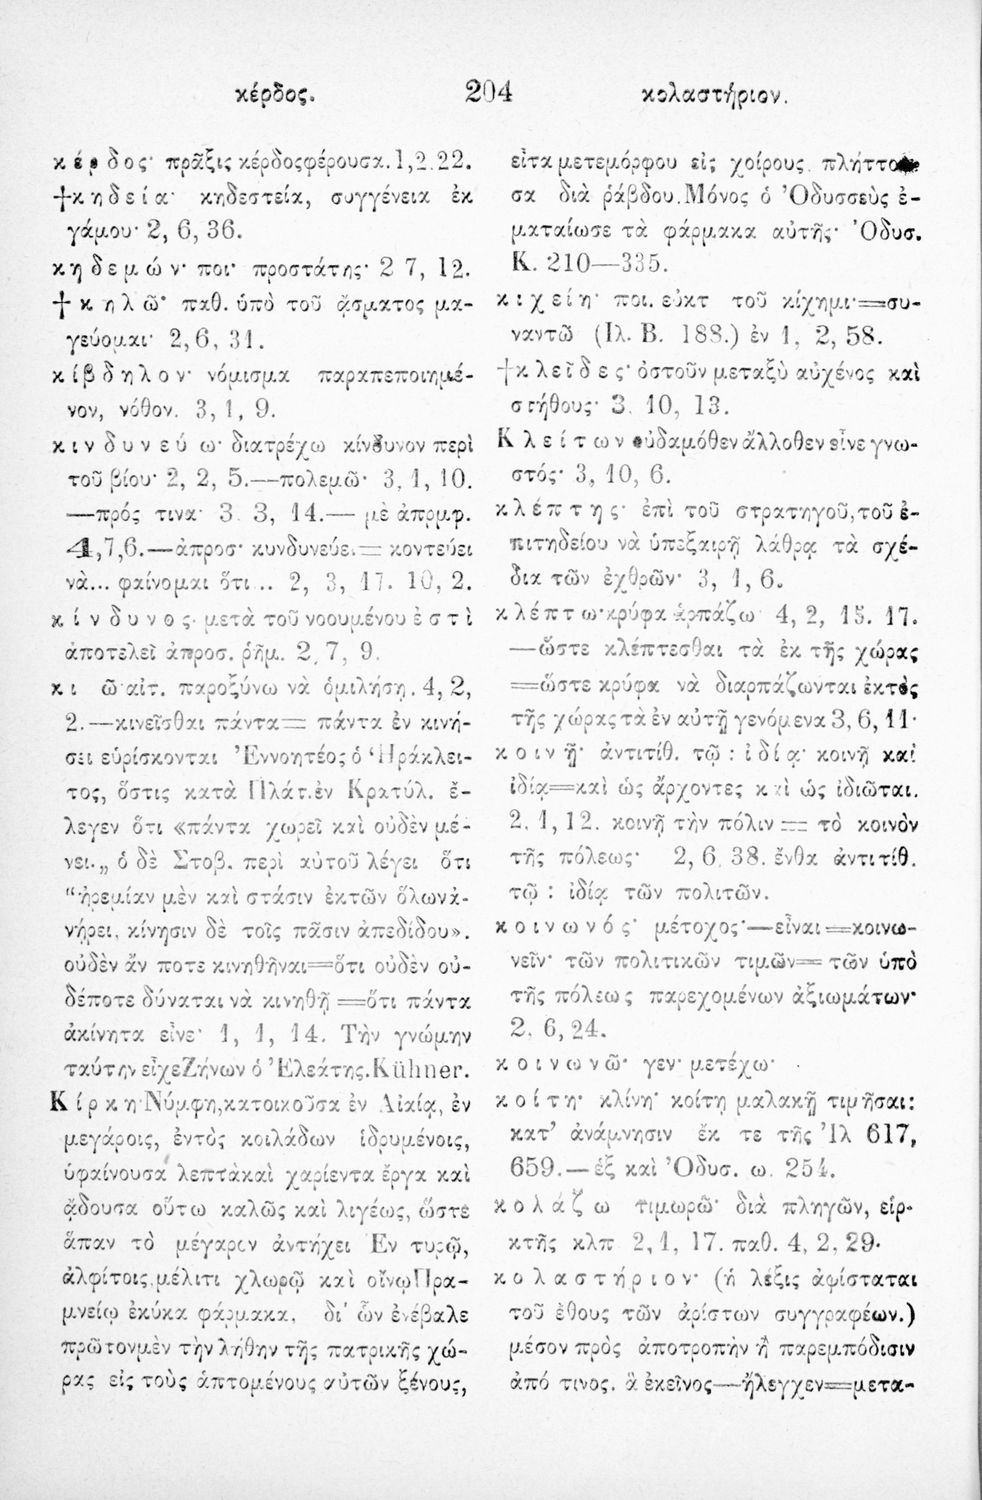 κέρδος. 204 κολαστήριον.
κέρδος· πρᾶξις κέρδος φέρουσα. 1, 2. 22.
†κηδεία· κηδεστεία, συγγένεια ἐκ
γάμου· 2, 6, 36.
κηδεμών· ποι· προστάτης· 2 7, 12.
†κηλῶ· παθ. ὑπὸ τοῦ ᾄσματος μα-
γεύομαι· 2, 6, 31.
κίβδηλον· νόμισμα παραπεποιημέ-
νον, νόθον. 3, 1, 9.
κινδυνεύω· διατρέχω κίνδυνον περὶ
τοῦ βίου· 2, 2, 5.—πολεμῶ· 3, 1, 10.
—πρός τινα· 3. 3, 14.— μὲ ἀπρμφ.
4,7,6.—ἀπροσ· κυνδυνεύει= κοντεύει
νὰ... φαίνομαι ὅτι .. 2, 3, 17. 10, 2.
κίνδυνος· μετὰ τοῦ νοουμένου ἐστὶ
ἀποτελεῖ ἀπροσ. ῥῆμ. 2, 7, 9.
κι ῶ αἰτ. παροξύνω νὰ ὁμιλήσῃ. 4, 2,
2.—κινεῖσθαι πάντα= πάντα ἐν κινή-
σει εὑρίσκονται Ἐννοητέος ὁ Ἡράκλει-
τος, ὅστις κατὰ Πλάτ. ἐν Κρατύλ. ἔ-
λεγεν ὅτι «πάντα χωρεῖ καὶ οὐδὲν μέ-
νει.„ ὁ δὲ Στοβ. περὶ αὐτοῦ λέγει ὅτι
“ἠρεμίαν μὲν καὶ στάσιν ἐκ τῶν ὅλων ἀ-
νῄρει, κίνησιν δὲ τοῖς πᾶσιν ἀπεδίδου».
οὐδὲν ἄν ποτε κινηθῆναι=ὅτι οὐδὲν οὐ-
δέποτε δύναται νὰ κινηθῇ =ὅτι πάντα
ἀκίνητα εἶνε· 1, 1, 14. Τὴν γνώμην
ταύτην εἶχε Ζήνων ὁ Ἐλεάτης. Kühner.
Κίρκη· Νύμφη, κατοικοῦσα ἐν Αἰαίᾳ, ἐν
μεγάροις, ἐντὸς κοιλάδων ἱδρυμένοις,
ὑφαίνουσα λεπτὰ καὶ χαρίεντα ἔργα καὶ
ᾄδουσα οὕτω καλῶς καὶ λιγέως, ὥστε
ἅπαν τὸ μέγαρον ἀντήχει Ἐν τυρῷ,
ἀλφίτοις, μέλιτι χλωρῷ καὶ οἴνῳ Πρα-
μνείῳ ἐκύκα φάρμακα, δι' ὧν ἐνέβαλε
πρῶτον μὲν τὴν λήθην τῆς πατρικῆς χώ-
ρας εἰς τοὺς ἁπτομένους αὐτῶν ξένους,
εἶτα μετεμόρφου εἰς χοίρους, πλήττου-
σα διὰ ῥάβδου. Μόνος ὁ Ὀδυσσεὺς ἐ-
ματαίωσε τὰ φάρμακα αὐτῆς· Ὀδυσ.
Κ. 210—335.
κιχείη· ποι. εὐκτ τοῦ κίχημι·=συ-
ναντῶ (Ἰλ. Β. 188.) ἐν 1, 2, 58.
†κλεῖδες· ὀστοῦν μεταξὺ αὐχένος καὶ
στήθους· 3. 10, 13.
Κλείτων οὐδαμόθεν ἄλλοθεν εἶνε γνω-
στός· 3, 10, 6.
κλέπτης· ἐπὶ τοῦ στρατηγοῦ, τοῦ ἐ-
πιτηδείου νὰ ὑπεξαιρῇ λάθρᾳ τὰ σχέ-
δια τῶν ἐχθρῶν· 3, 1, 6.
κλέπτω· κρύφα ἁρπάζω· 4, 2, 15. 17.
—ὥστε κλέπτεσθαι τὰ ἐκ τῆς χώρας
=ὥστε κρύφα νὰ διαρπάζωνται ἐκτὸς
τῆς χώρας τὰ ἐν αὐτῇ γενόμενα 3, 6, 11·
κοινῇ· ἀντιτίθ. τῷ : ἰδίᾳ· κοινῇ καὶ
ἰδίᾳ=καὶ ὡς ἄρχοντες καὶ ὡς ἰδιῶται.
2, 1, 12. κοινῇ τὴν πόλιν = τὸ κοινὸν
τῆς πόλεως· 2, 6, 38. ἔνθα ἀντιτίθ.
τῷ : ἰδίᾳ τῶν πολιτῶν.
κοινωνός· μέτοχος·—εἶναι=κοινω-
νεῖν· τῶν πολιτικῶν τιμῶν= τῶν ὑπὸ
τῆς πόλεως παρεχομένων ἀξιωμάτων·
2, 6, 24.
κοινωνῶ· γεν· μετέχω·
κοίτη· κλίνη· κοίτη μαλακῇ τιμῆσαι:
κατ' ἀνάμνησιν ἔκ τε τῆς Ἰλ 617,
659.—ἐξ καὶ Ὀδυσ. ω. 254.
κολάζω τιμωρῶ· διὰ πληγῶν, εἱρ-
κτῆς κλπ 2, 1, 17. παθ. 4, 2, 29·
κολαστήριον· (ἡ λέξις ἀφίσταται
τοῦ ἔθους τῶν ἀρίστων συγγραφέων.)
μέσον πρὸς ἀποτροπὴν ἢ παρεμπόδισιν
ἀπό τινος. ἃ ἐκεῖνος—ἤλεγχεν=μετα-